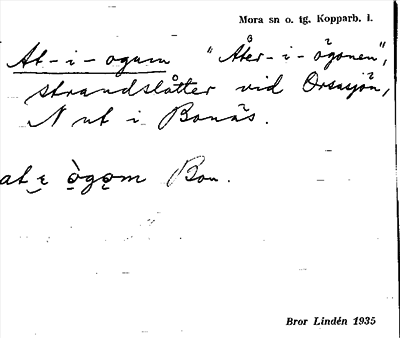 Mora sn o. tg, Kopparb. l.
At-i-ogum "Åter-i-ögonen",
strandslåtter vid Orsasjön,
N ut i Bonäs.
Bon.
Bror Lindén 1935